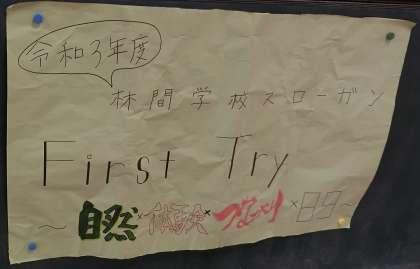 令和3年度
林間学校スローガン
First Try
～自然×体験×つながり×89～